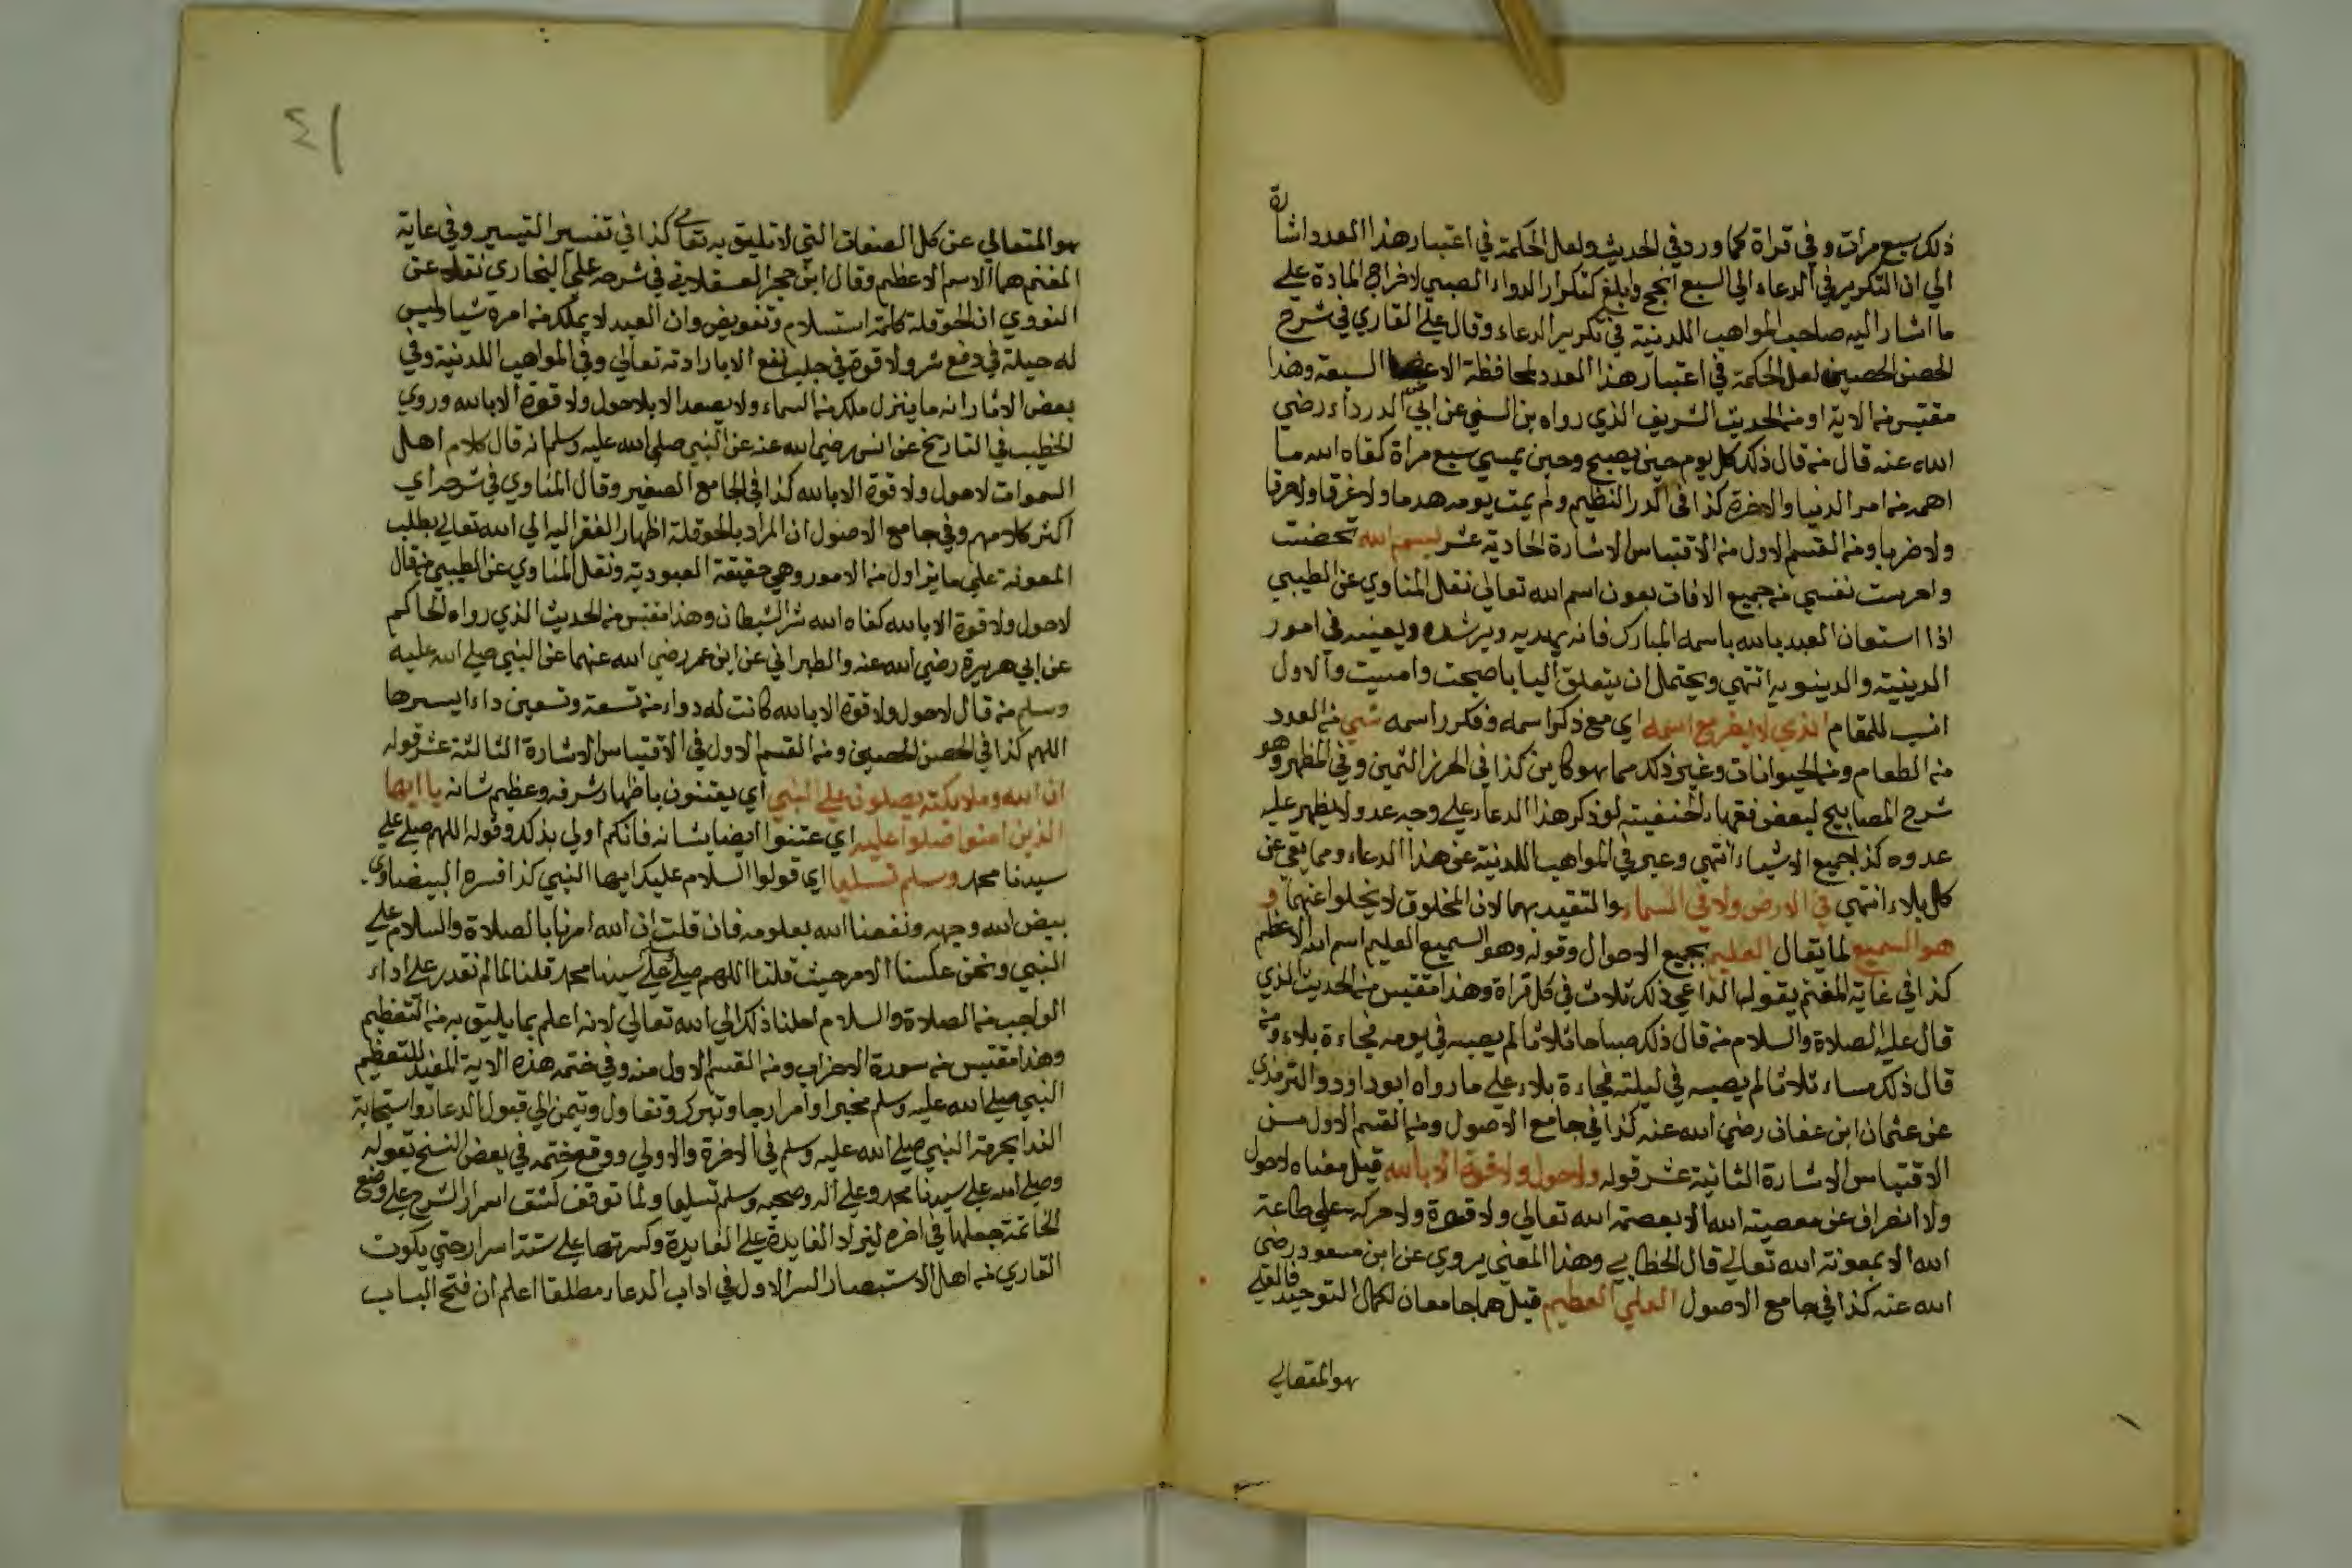 ذلك سبع مرات وفي قراة كما ورد في الحديث ولعل الحكمة في اعتبار هذا العدد اشارة
الي ان التكرير في الدعاء الي السبع انجح وابلغ كتكرار الدواء الصبي لاخراج المادة علي
ما اشار اليه صاحب المواهب اللدنية في تكرير الدعاء وقال علي القاري في شرح
الحصن الحصين لعل الحكمة في اعتبار هذا العدد لمحافظة الاعضا السبعة وهذا
مقتبس من الاية او من الحديث الشريف الذي رواه بن السني عن ابي الدرداء رضي
الله عنه قال من قال ذلك كل يوم حين يصبح وحين يمسي سبع مراة كفاه الله ما
اهمه من امر الدنيا والاخرة كذا في الدر النظيم ولم يمت يومه هدما ولا غرقا ولا حرقا
ولا ضربا ومن القسم الاول من الاقتباس الاشارة الحادية عشر بسم الله تحصنت
واحرست نفسي من جميع الافات بعون اسم الله تعالي نقل المناوي عن الطيبي
اذا استعان العبد بالله باسمه المبارك فانه يهديه ويرشده ويعينه في امور
الدينية والدينويه انتهي ويحتمل ان يتعلق اليا باصبحت وامسيت والاول
انسب للمقام الذي لا يضر مع اسمه اي مع ذكر اسمه وفكر راسمه شي من العدد
من الطعام ومن الحيوانات وغير ذلك مما هو كاين كذا في الحرز الثمين وفي المظهر وهو
شرح المصابيح لبعض فقهاء الحنفيته لو ذكر هذا الدعاء علي وجه عدو لا يظهر عليه
عدوه كذا جميع الاشياء انتهي وعبر في المواهب اللدنية عن هذا الدعاء ومما يقي عن
كل بلاء انتهي في الارض ولا في السماء والتقييد بهما لان المخلوق لا يخلوا عنهما و
هو السميع لما يقال العليم بجميع الاحوال وقوله وهو السميع العليم اسم الله الاعظم
كذا في غاية المغنم يقولها الداعي ذلك ثلاث في كل قراة وهذا مقتبس من الحديث الذي
قال عليه الصلاة والسلام من قال ذلك صباحا ثلاثا لم يصبه في يومه فجاءة بلاء ومن
قال ذلك مساء ثلاثا لم يصبه في ليلته فجاءة بلاء علي ما رواه ابو داود والترمذي
عن عثمان ابن عفان رضي الله عنه كذا في جامع الاصول ومن القسم الاول من
الاقتباس الاشارة الثانية عشر قوله ولا حول ولا قوة الا بالله قيل معناه لا حول
ولا انصراف عن معصيته الله الا بعصمة الله تعالي ولا قوة ولا حركة علي طاعة
الله الا بمعونة الله تعالي قال الخطابي وهذا المعني يروي عن ابن مسعود رضي
الله عنه كذا في جامع الاصول العلي العظيم قيل هما جامعان لكمال التوحيد فالعلي
هو المتعالي
٤١
هو المتعالي عن كل الصفات التي لا تليق به تعالي كذا في تفسير التيسير وفي غاية
المغنم هما الاسم الاعظم وقال ابن حجر العسقلاني في شرحه علي البخاري نقله عن
النووي ان الحوقلة كلمة استسلام وتفويض وان العبد لا يملك من امره شيا وليس
له حيلة في دفع شر ولا قوة في جلب نفع الا بارادته تعالي وفي المواهب اللدنية وفي
بعض الاثار انه ما ينزل ملك من السماء ولا يصعد الا بلا حول ولا قوة الا بالله وروي
الخطيب في التاريخ عن انس رضي الله عنه عن النبي صلي الله عليه وسلم انه قال كلام اهل
السموات لا حول ولا قوة الا بالله كذا في الجامع الصغير وقال المناوي في شرحه اي
اكثر كلامهم وفي جامع الاصول ان المراد بالحوقلة اظهار الفقر اليه الي الله تعالي بطلب
المعونة علي ما يزاول من الامور وهي حقيقة العبودية ونقل المناوي عن الطيبي من قال
لا حول ولا قوة الا بالله كفاه الله شر الشيطان وهذا مقتبس من الحديث الذي رواه الحاكم
عن ابي هريرة رضي الله عنه والطبراني عن ابن عمر رضي الله عنهما عن النبي صلي الله عليه
وسلم من قال لا حول ولا قوة الا بالله كانت له دواء من تسعة وتسعين داء ايسرها
اللهم كذا في الحصن الحصين ومن القسم الاول في الاقتباس الاشارة الثالثة عشر قوله
ان الله وملائكته يصلون علي النبي اي يعتنون باظهار شرفه وعظيم شانه يا ايها
الذين امنوا صلوا عليه اي عتنوا ايضا بشانه فانكم اولي بذلك وقوله اللهم صلي علي
سيدنا محمد وسلم تسليما اي قولوا السلام عليك ايها النبي كذا فسره البيضاوي
بيض الله وجهه ونفعنا الله بعلومه فان قلت ان الله امرنا بالصلاة والسلام علي
النبي ونحن عكسنا الامر حيث قلنا اللهم صلي علي سيدنا محمد قلنا لما لم نقدر علي اداء
الواجب من الصلاة والسلام احلنا ذلك الي الله تعالي لانه اعلم بما يليق به من التعظيم
وهذا مقتبس من سورة الاحزاب ومن القسم الاول منه وفي ختمه هذه الاية المفيد للتعظيم
النبي صلي الله عليه وسلم مخبرا وامرا رجا وتبرك وتفاول وتيمن الي قبول الدعاء واستجابة
الندا بحرمة النبي صلي الله عليه وسلم في الاخرة والاولي ووقع ختمه في بعض النسخ بقوله
وصلي الله علي سيدنا محمد وعلي اله وصحبه وسلم تسليما ولما توقف كشف اسرار الشرح علي وضع
الخاتمة جعلها في اخره ليزداد الفايدة علي الفايدة وكسرتها علي ستة اسرار حتي يكون
القاري من اهل الاستبصار السر الاول في اداب الدعاء مطلقا اعلم ان فتح الباب